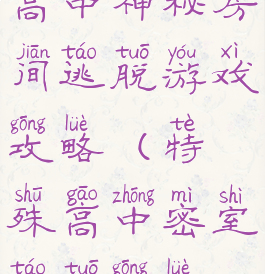 高中神秘房
jiān táo tuō yóu xì
间逃脱游戏
gōng lüè tè
攻略（特
shū gāo zhōng mì shì
殊高中密室
táo tuō gōng lüè